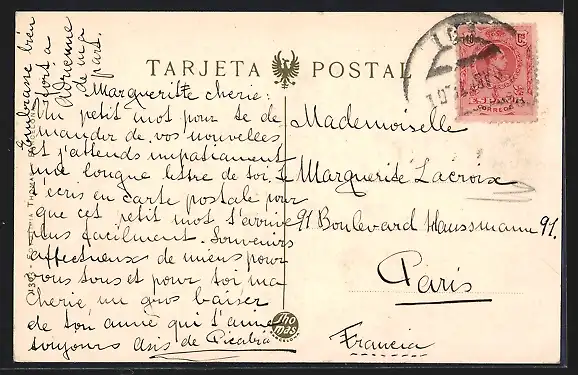 Embrasse bien
fort a
Adrienne
de ma
part.
TARJETA POSTAL
Margueritte cherie:
Un petit mot pour te de
mander de vos nouvelles
et j'attends impatiament
une longue lettre de toi. Je
t'ecris en carte postale pour
que cet petit mot t'arrive
plus facilment. Souvenirs
affectueux de miens pour
vous tous et pour toi ma
cherie un gros baiser
de ton amie qui t'aime
toujours Asis de Picabia
Mademoiselle
Marguerite Lacroix
91 Boulevard Haussmann 91.
Paris
Francia
Thomas
BARCELONA
ESPAÑA
CORREOS